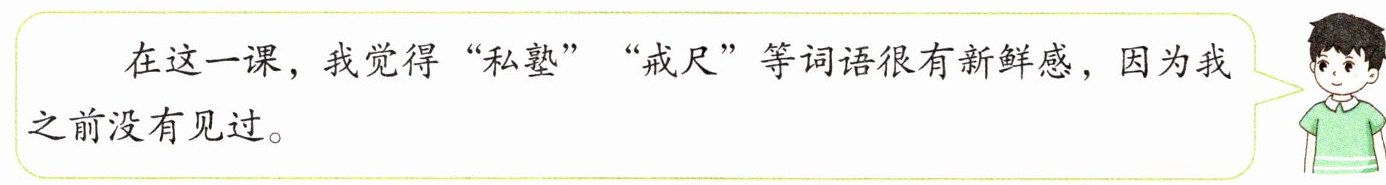 在这一课，我觉得“私塾”“戒尺”等词语很有新鲜感，因为我
之前没有见过。